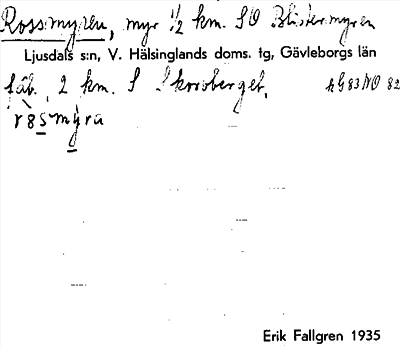 Rossmyren, myr 1/2 km. SO Blistermyren
Ljusdals s:n, V. Hälsinglands doms. tg, Gävleborgs län
fäb. 2 km. S Skorsberget.
rosmyra
Erik Fallgren 1935